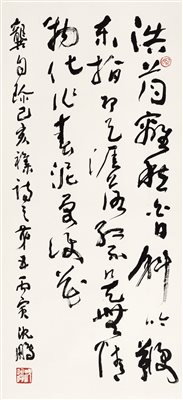 浩蕩離愁白日斜吟鞭
東指即天涯落紅不是無情
物化作春泥更護花
龔自珍己亥雜詩之第五丙寅沈鵬